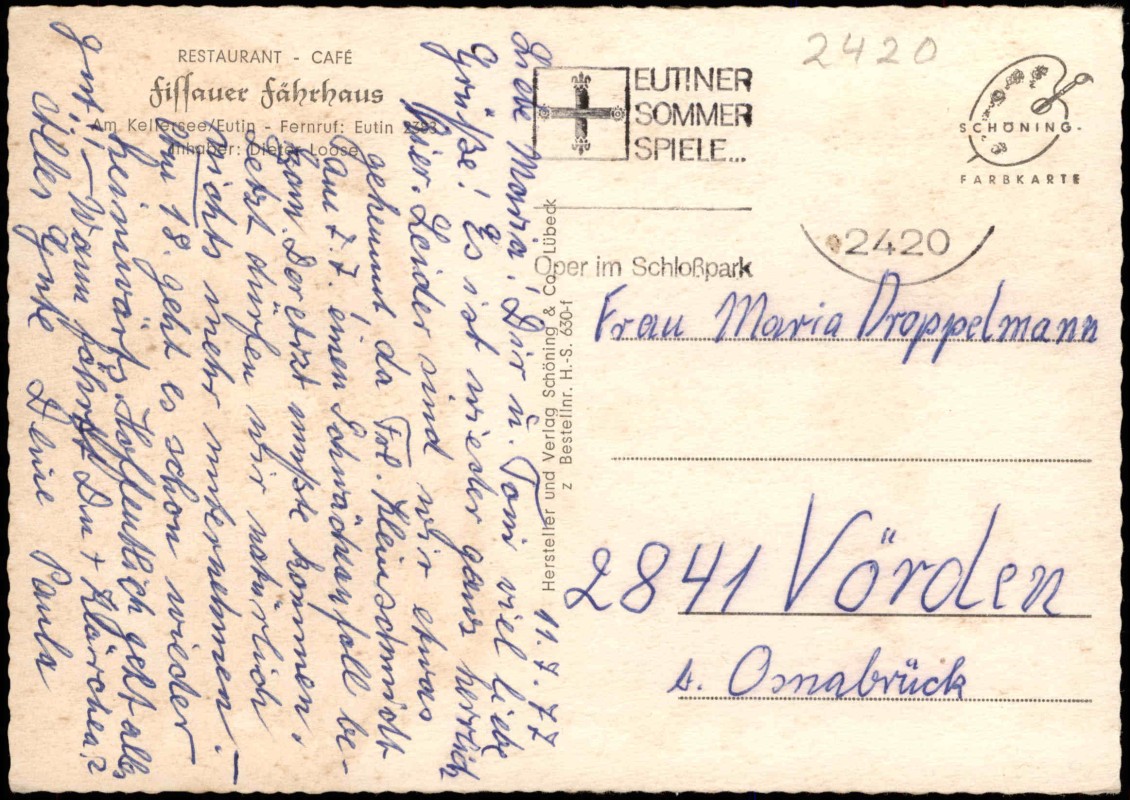 RESTAURANT - CAFÉ
Fissauer Fährhaus
Am Kellersee/Eutin - Fernruf: Eutin
Inhaber: Dieter Loose
11.7.77
Liebe Maria! Dir u. Toni viel liebe
Grüße! Es ist wieder ganz herrlich
hier. Leider sind wir etwas
gehemmt da Frl. Kleinschmidt
am 7.7. einen Schwächeanfall be-
kam. Der Arzt mußte kommen,
jetzt dürfen wir natürlich
nichts mehr unternehmen. –
Am 18. geht es schon wieder
heimwärts. Hoffentlich geht alles
gut! – Wann fährst Du + Klärchen?
Alles Gute Deine Paula
Hersteller und Verlag Schöning & Co., Lübeck
z Bestellnr. H.-S. 630-f
EUTINER
SOMMER
SPIELE...
Oper im Schloßpark
2420
SCHÖNING-
FARBKARTE
2420
Frau Maria Droppelmann
2841 Vörden
b. Osnabrück